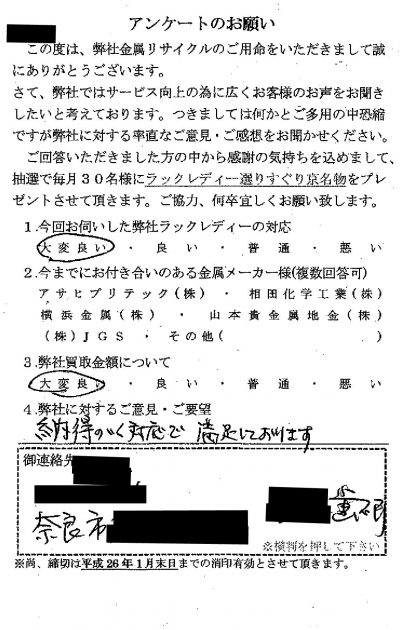 アンケートのお願い
この度は、弊社金属リサイクルのご用命をいただきまして誠
にありがとうございます。
さて、弊社ではサービス向上の為に広くお客様のお声をお聞き
したいと考えております。つきましては何かとご多用の中恐縮
ですが弊社に対する率直なご意見・ご感想をお聞かせください。
ご回答いただきました方の中から感謝の気持ちを込めまして、
抽選で毎月30名様にラックレディー選りすぐり京名物をプレ
ゼントさせて頂きます。ご協力、何卒宜しくお願い致します。
1.今回お伺いした弊社ラックレディーの対応
大変良い ・ 良い ・ 普通 ・ 悪い
2.今までにお付き合いのある金属メーカー様(複数回答可)
アサヒプリテック(株) ・ 相田化学工業(株)
横浜金属(株) ・ 山本貴金属地金(株)
(株)JGS ・ その他( )
3.弊社買取金額について
大変良い ・ 良い ・ 普通 ・ 悪い
4.弊社に対するご意見・ご要望
納得のいく対応で 満足しております
御連絡先
奈良市
※横判を押して下さい
※尚、締切は平成26年1月末日までの消印有効とさせて頂きます。